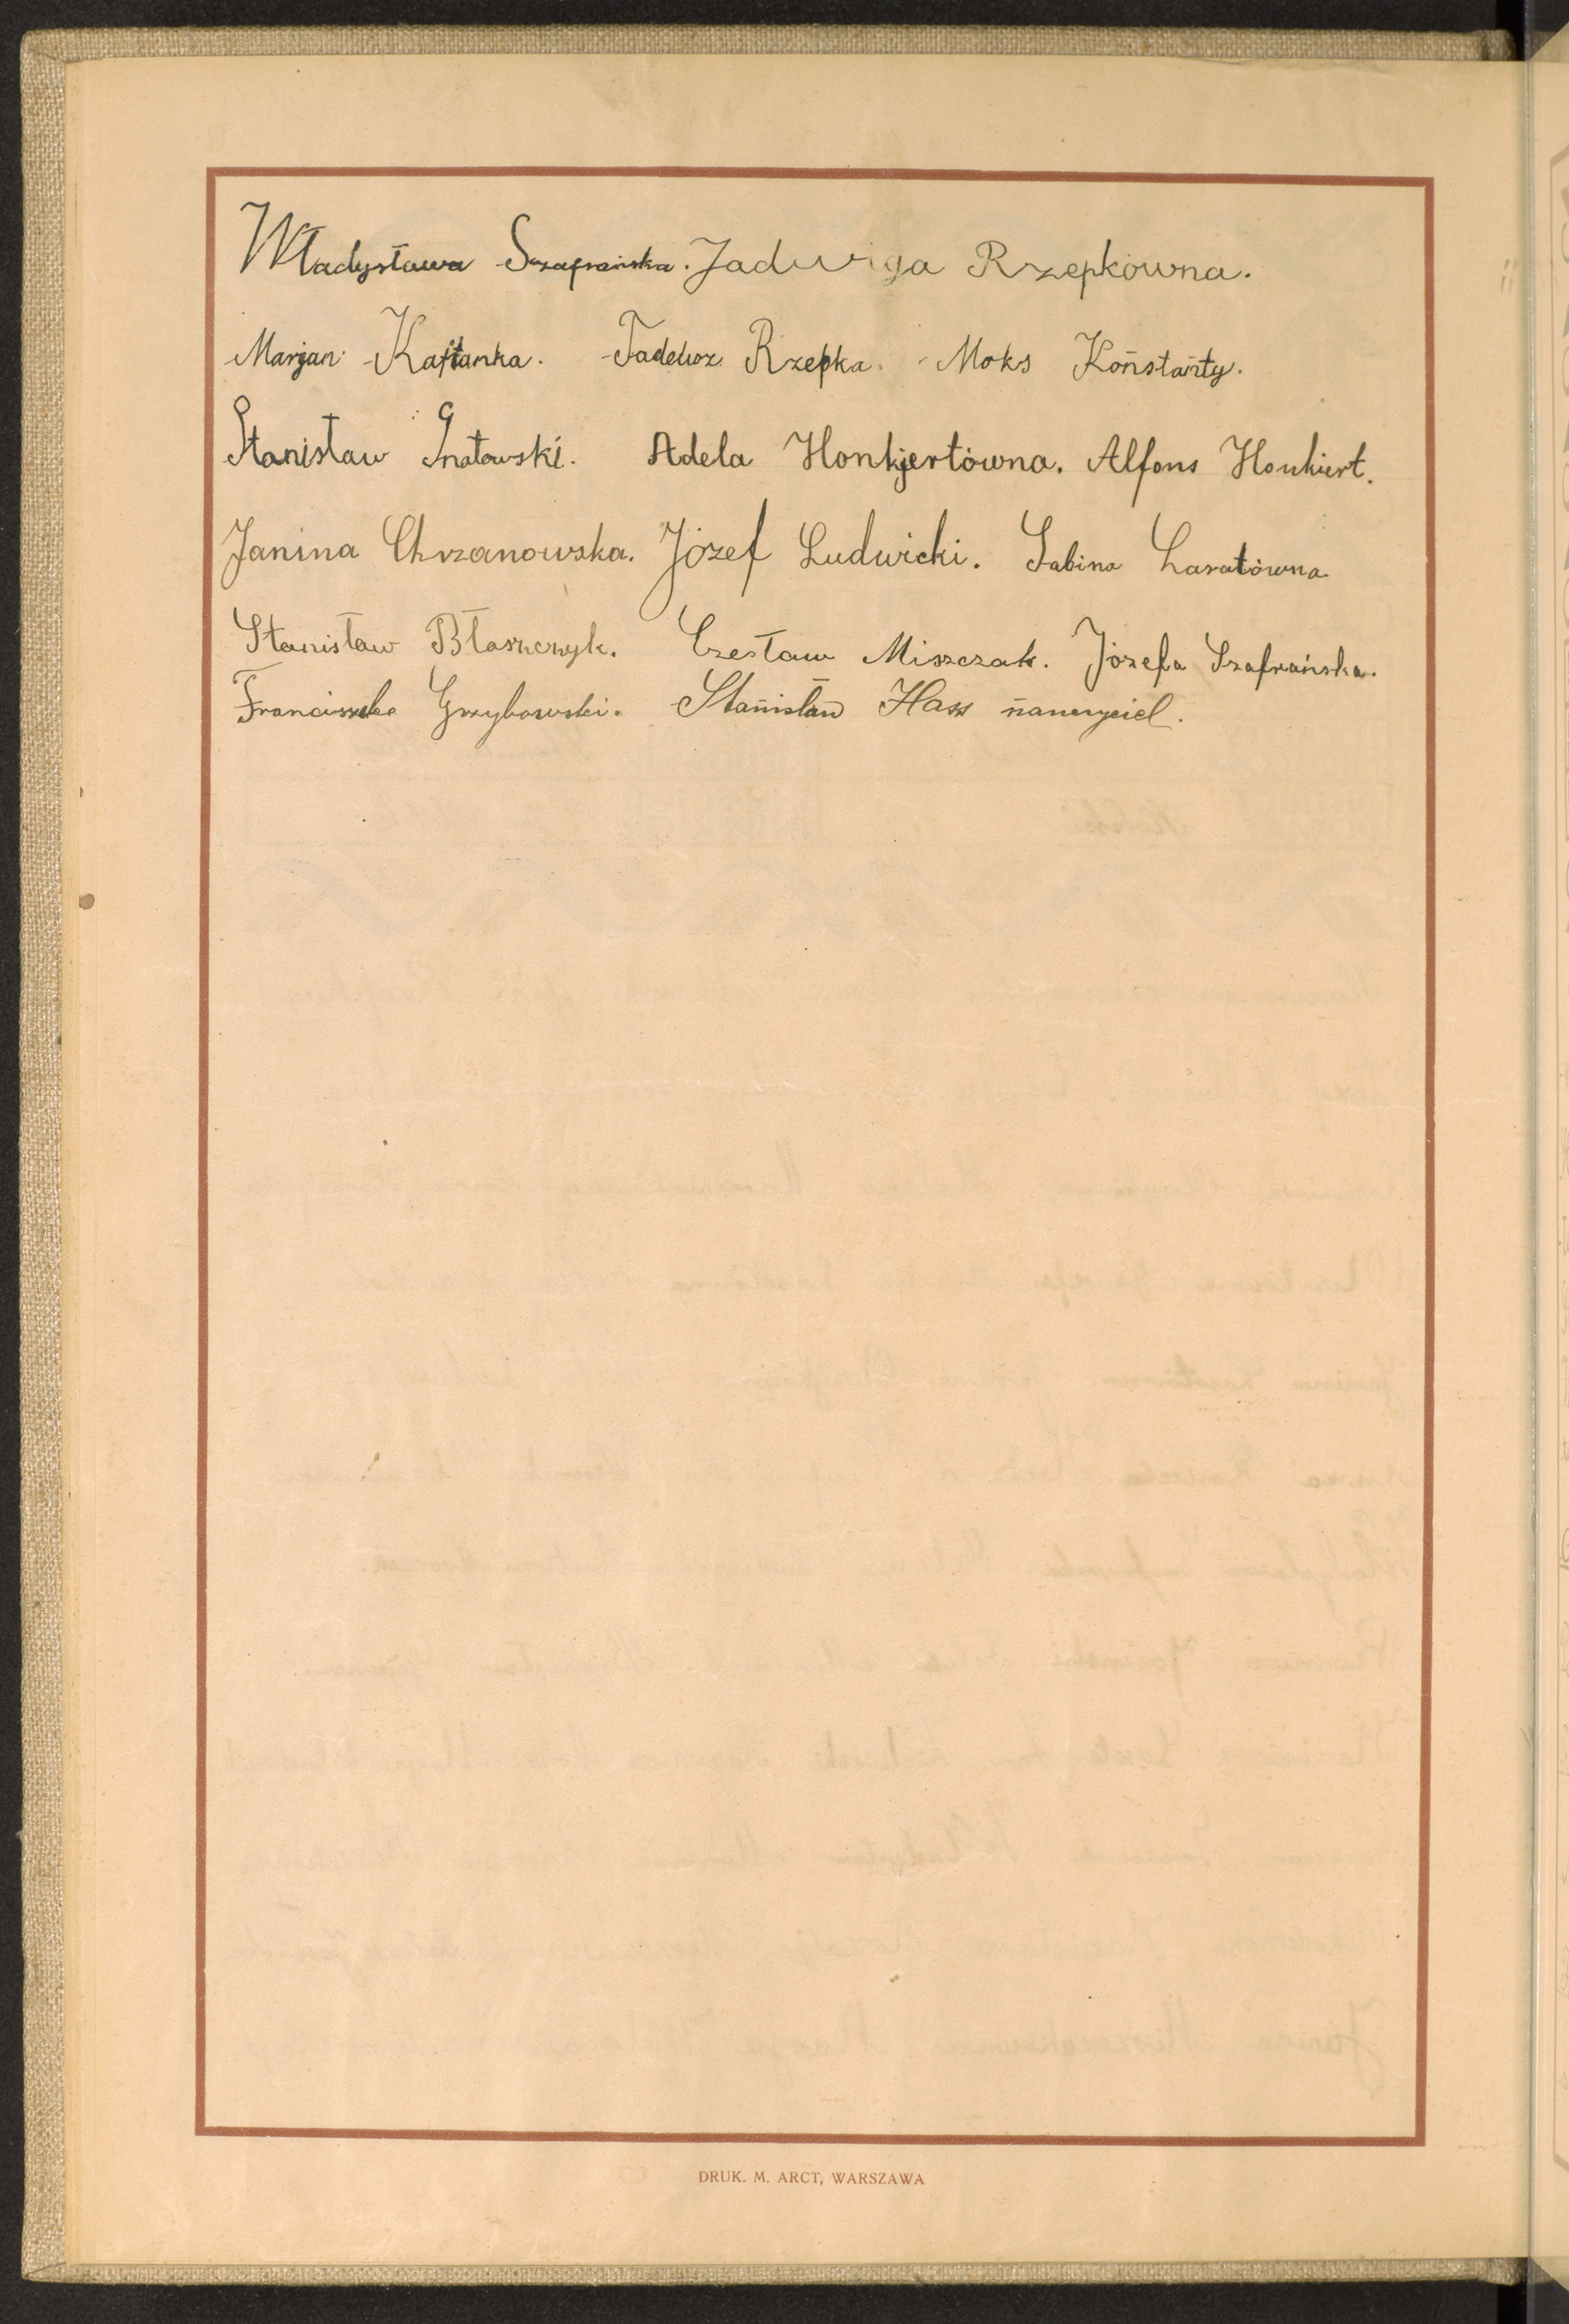 Władysława Szafrańska. Jadwiga Rzepkówna.
Marjan Kaftanka. Tadeusz Rzepka. Moks Konstanty.
Stanisław Gnatowski. Adela Honkjertówna. Alfons Honkiert.
Janina Chrzanowska. Józef Ludwicki. Sabina Laratówna
Stanisław Błaszczyk. Czesław Miszczak. Józefa Szafrańska.
Grzybowski. Stanisław Hass nauczyciel.
DRUK. M. ARCT, WARSZAWA